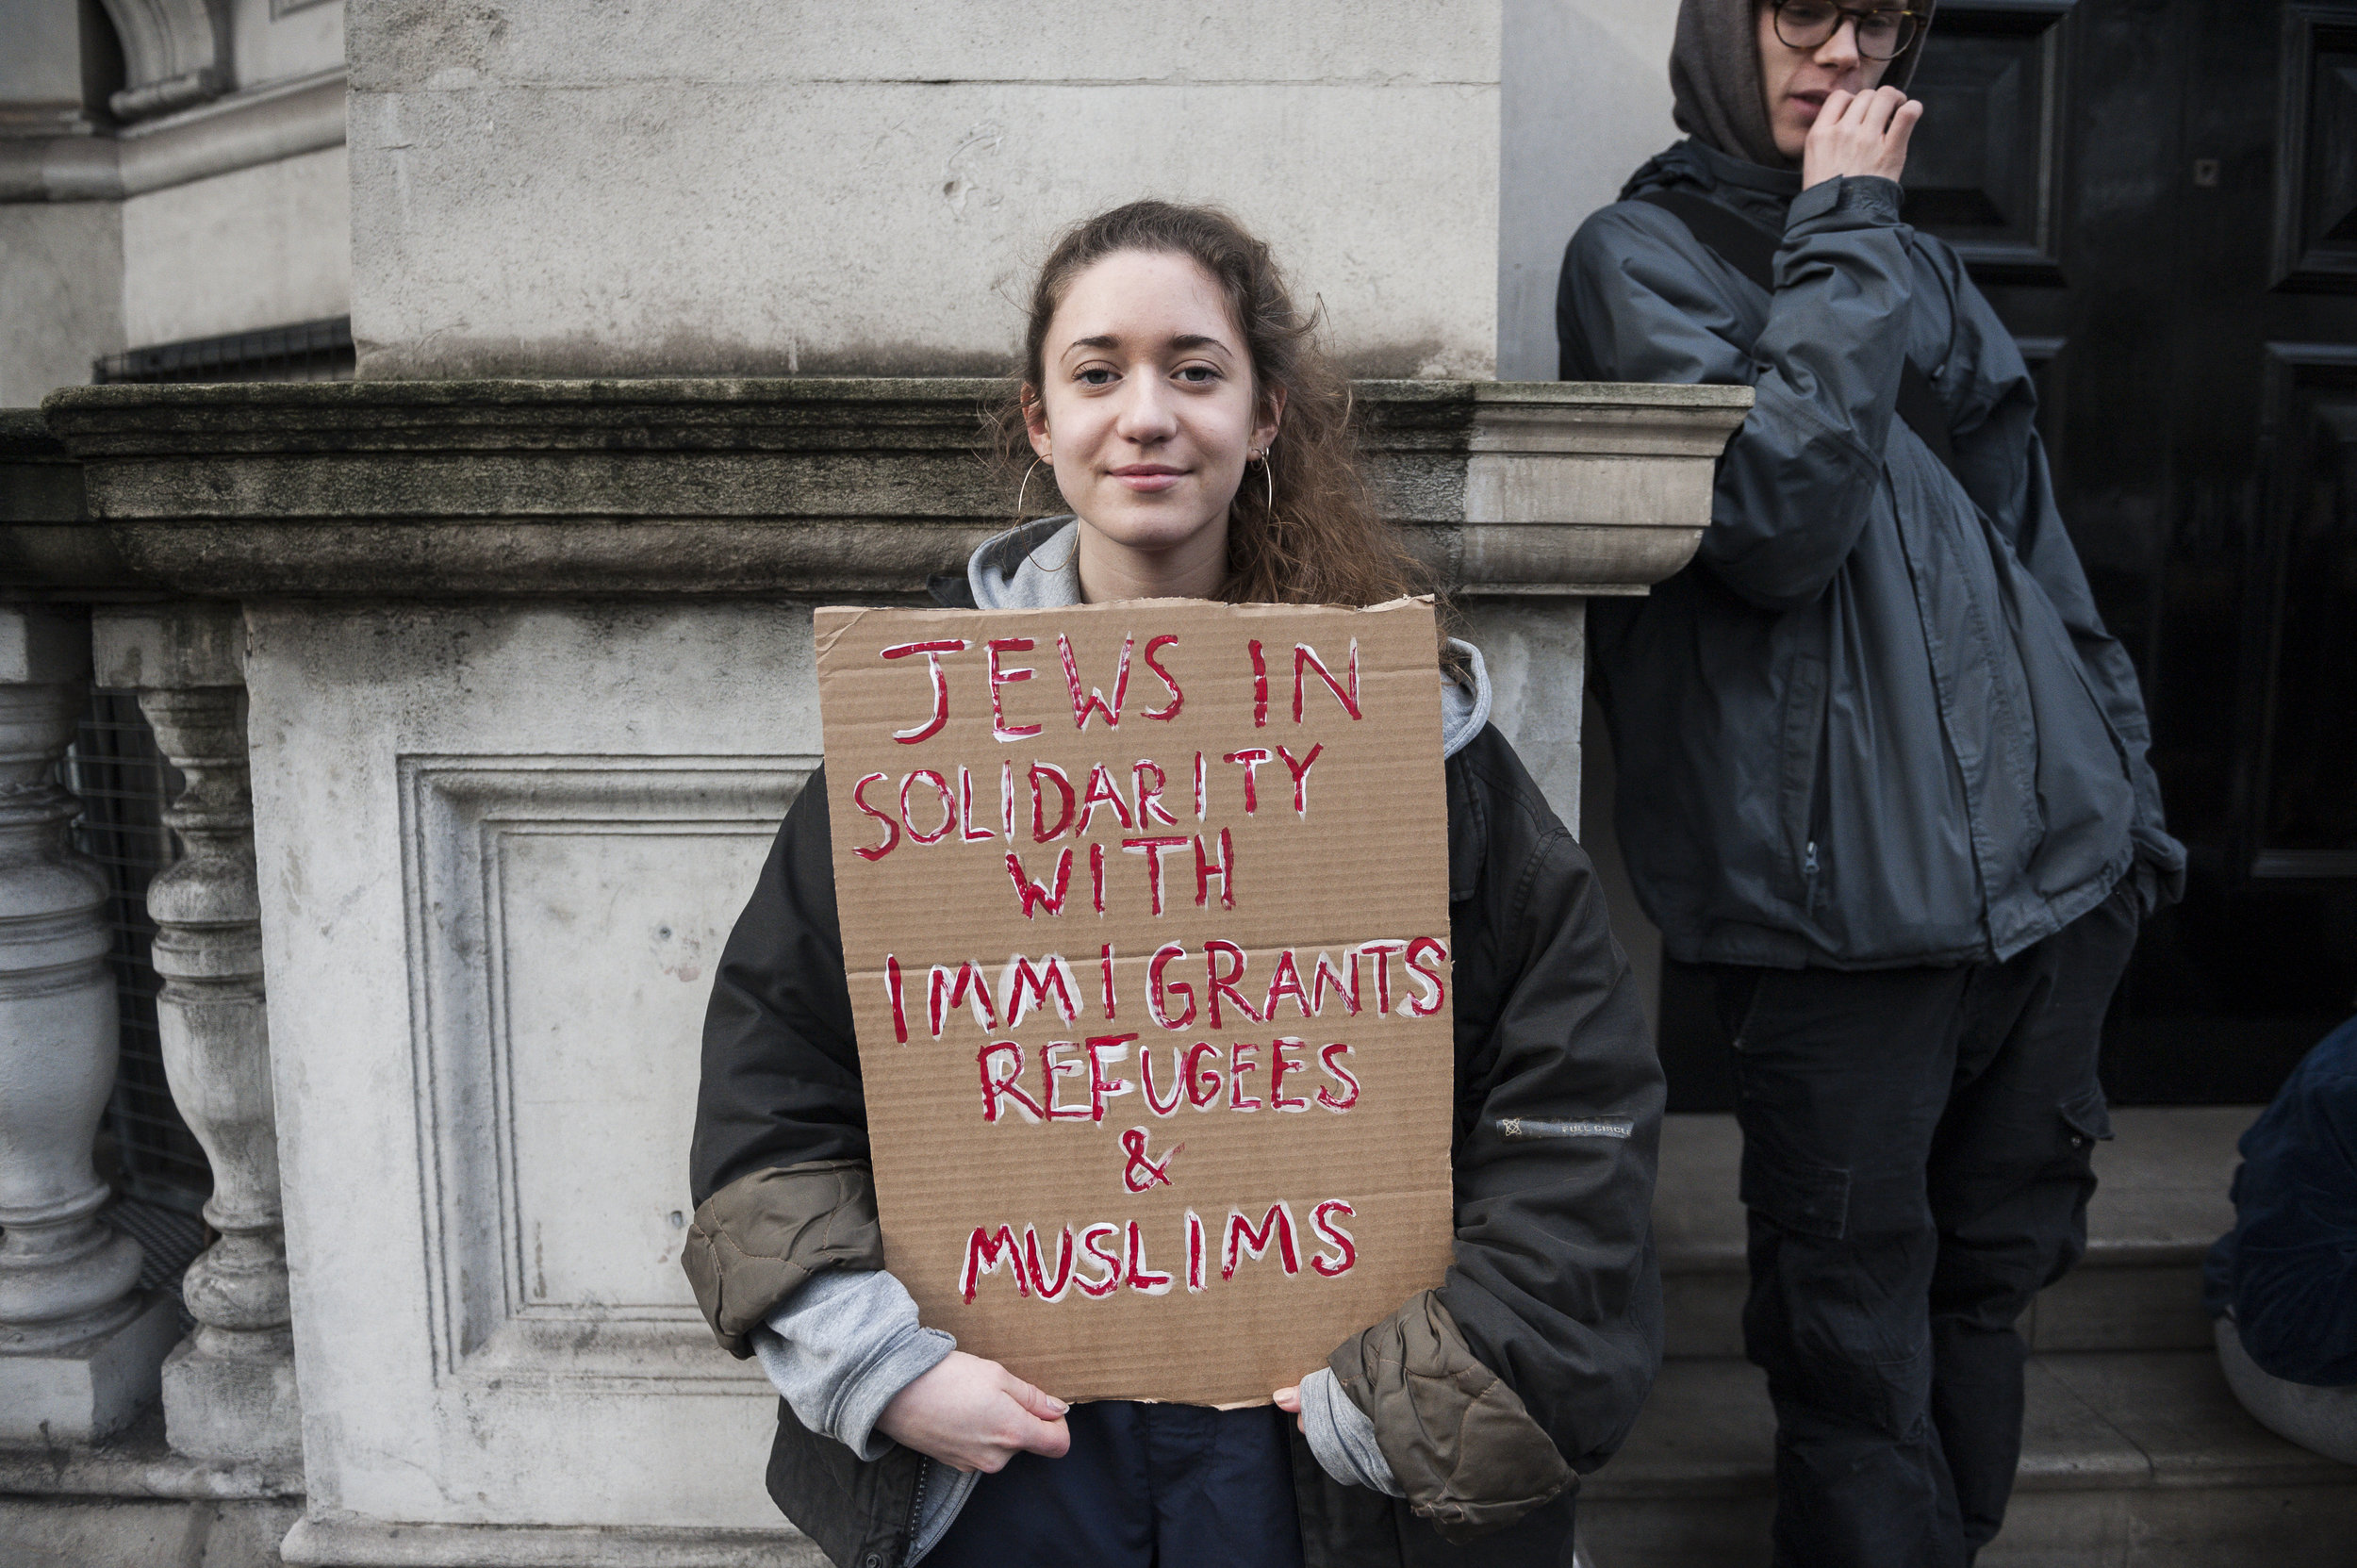 JEWS IN
SOLIDARITY
WITH
IMMIGRANTS
REFUGEES
&
MUSLIMS
FULL CIRCLE